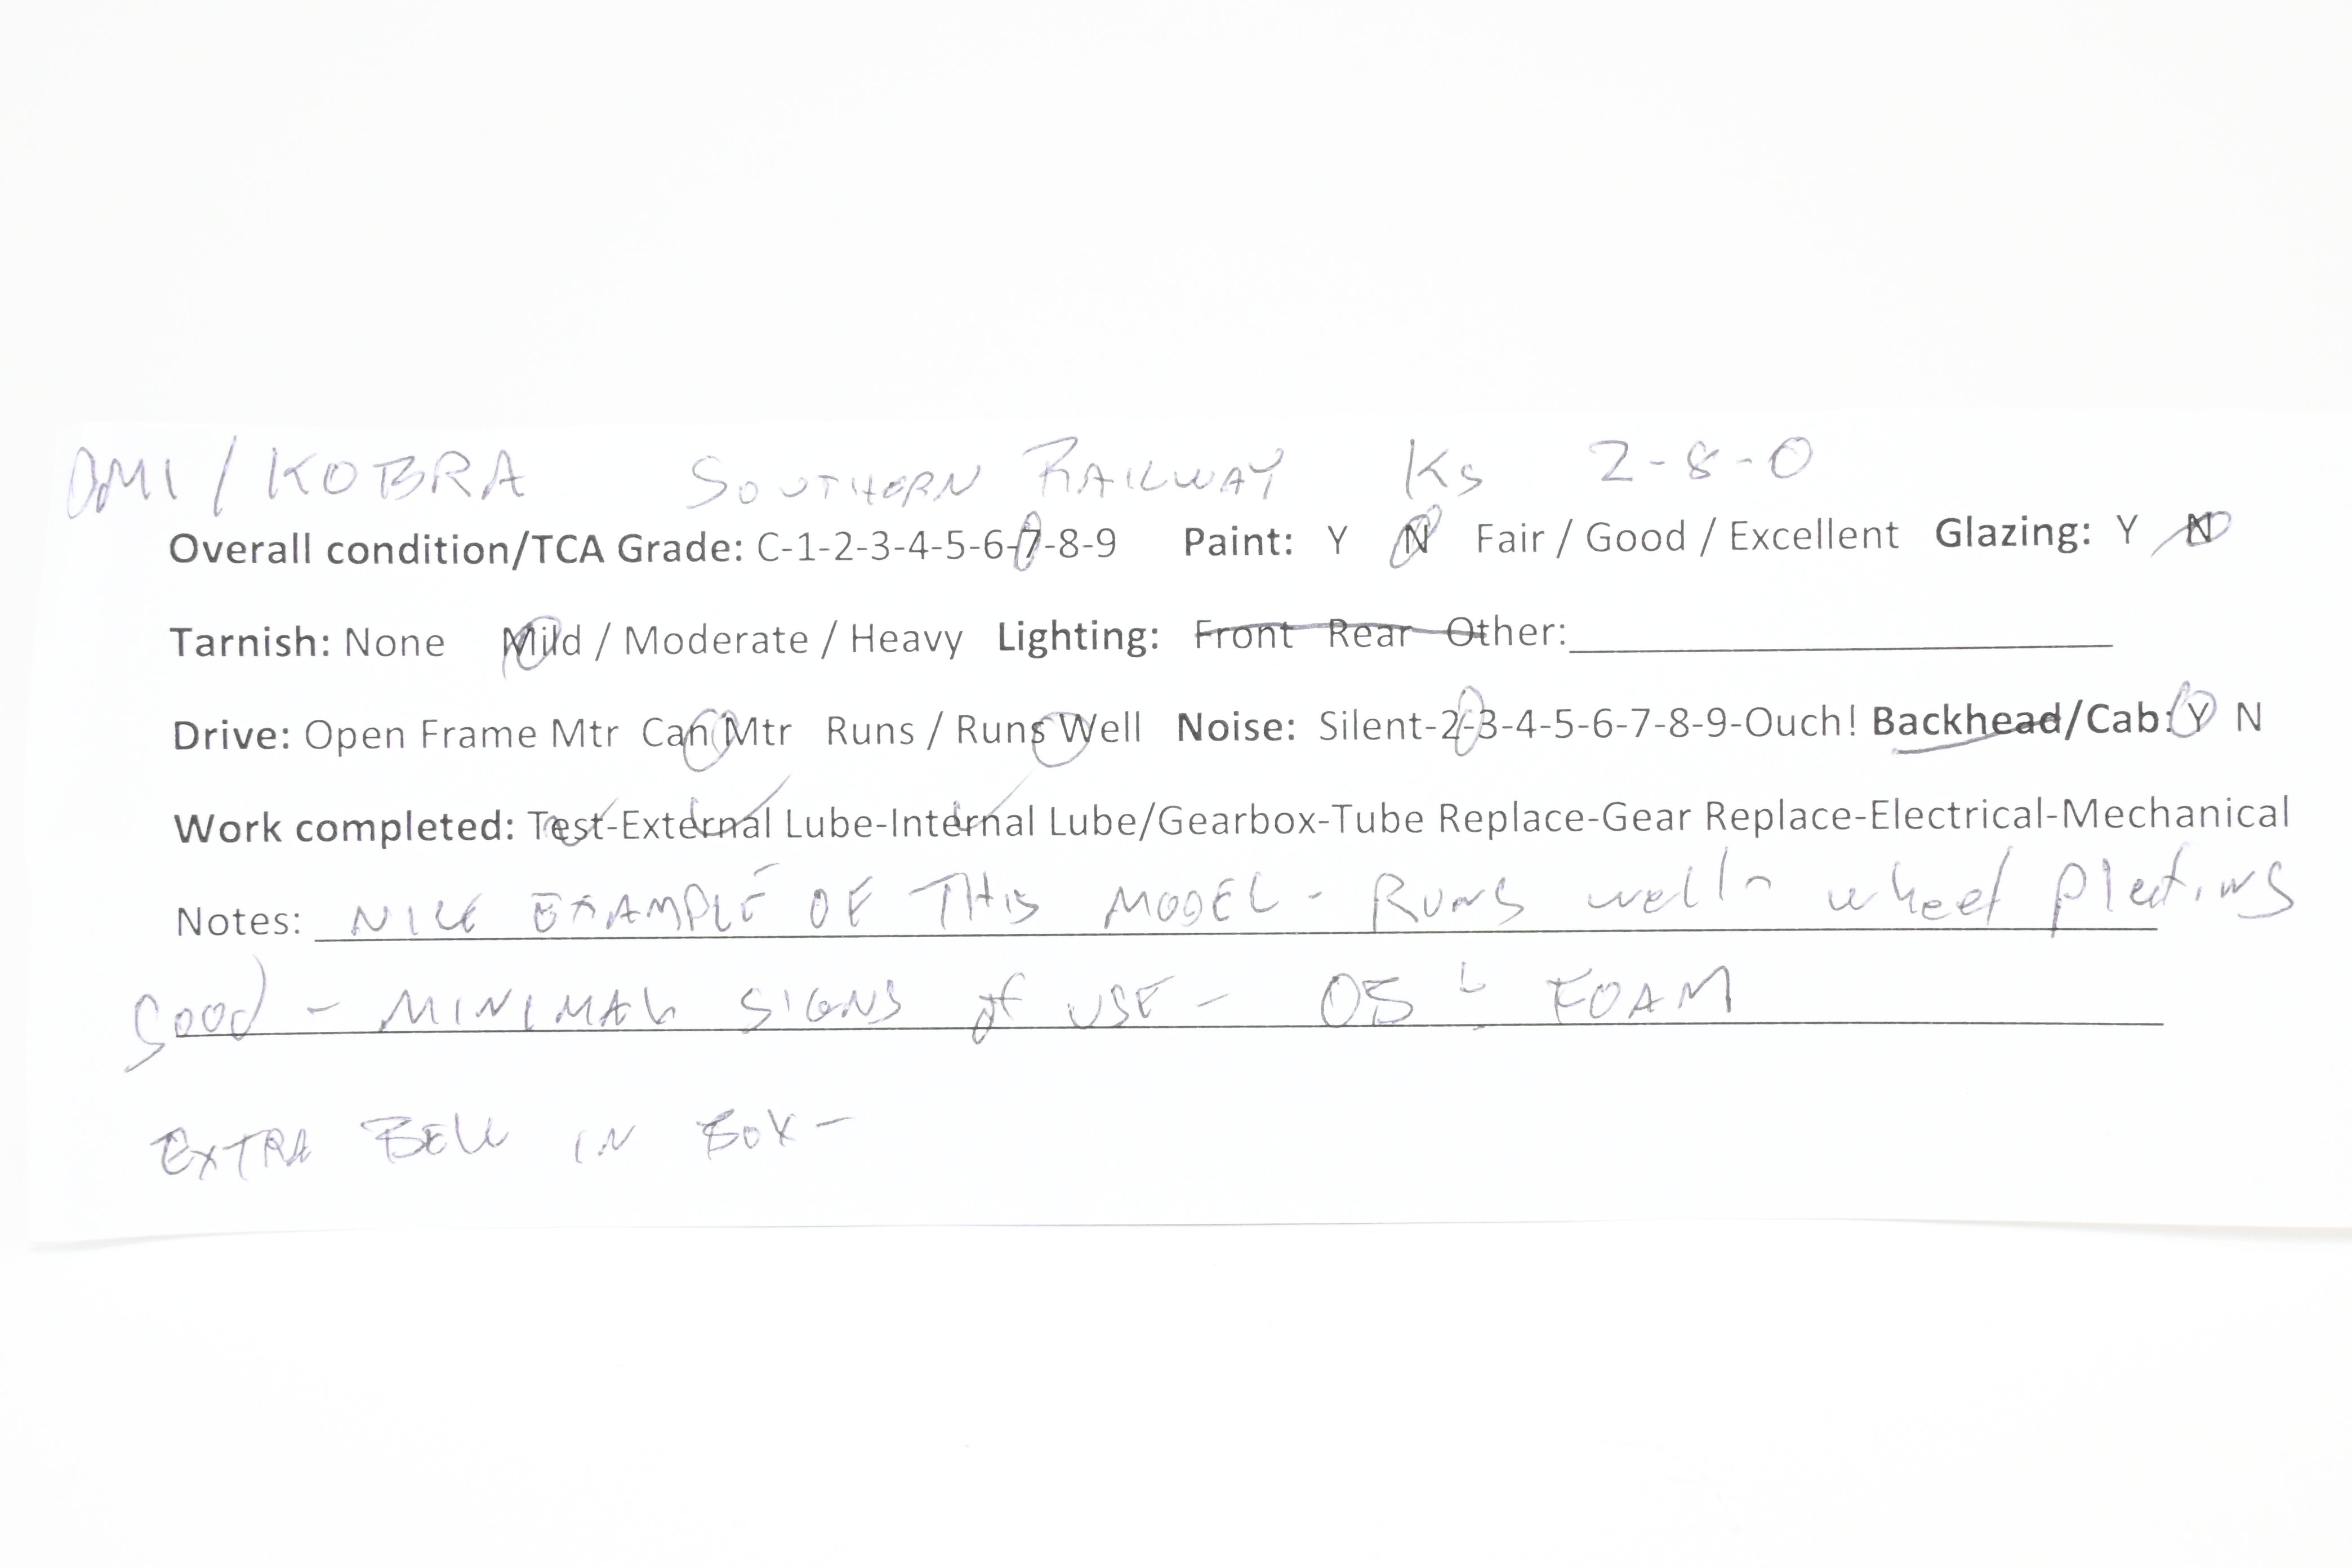 OMI / KOBRA SOUTHERN RAILWAY Ks 2-8-0
Overall condition/TCA Grade: C-1-2-3-4-5-6-7-8-9 Paint: Y N Fair / Good / Excellent Glazing: Y N
Tarnish: None Mild / Moderate / Heavy Lighting: Front Rear Other:
Drive: Open Frame Mtr Can Mtr Runs / Runs Well Noise: Silent-2-3-4-5-6-7-8-9-Ouch! Backhead/Cab: Y N
Work completed: Test-External Lube-Internal Lube/Gearbox-Tube Replace-Gear Replace-Electrical-Mechanical
Notes: NICE EXAMPLE OF THIS MODEL - RUNS well - wheel platings
good - MINIMAL SIGNS of USE - FOAM
EXTRA BELL IN BOX -